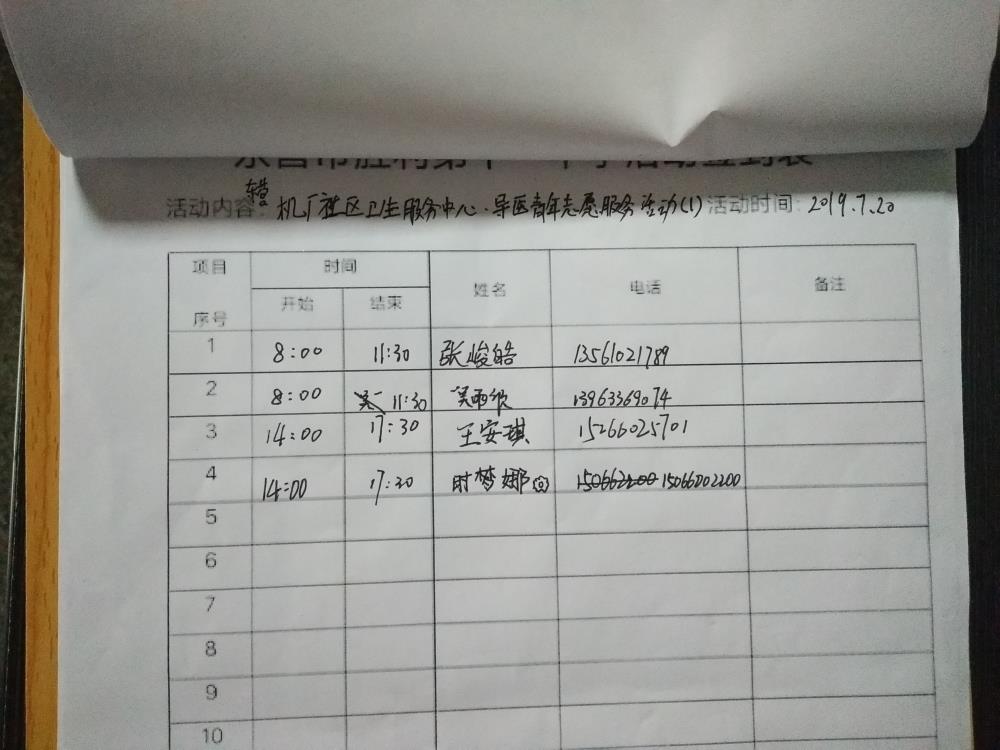 东营市胜利第十一中学活动签到表
活动内容：东营机厂社区卫生服务中心·导医青年志愿服务活动(1) 活动时间：2019.7.20
项目 时间 姓名 电话 备注
序号 开始 结束
1 8:00 11:30 张峻皓 13561021789
2 8:00 11:30 吴雨 13963369074
3 14:00 17:30 王安琪 15266025701
4 14:00 17:30 时梦娜 15066002200
5
6
7
8
9
10